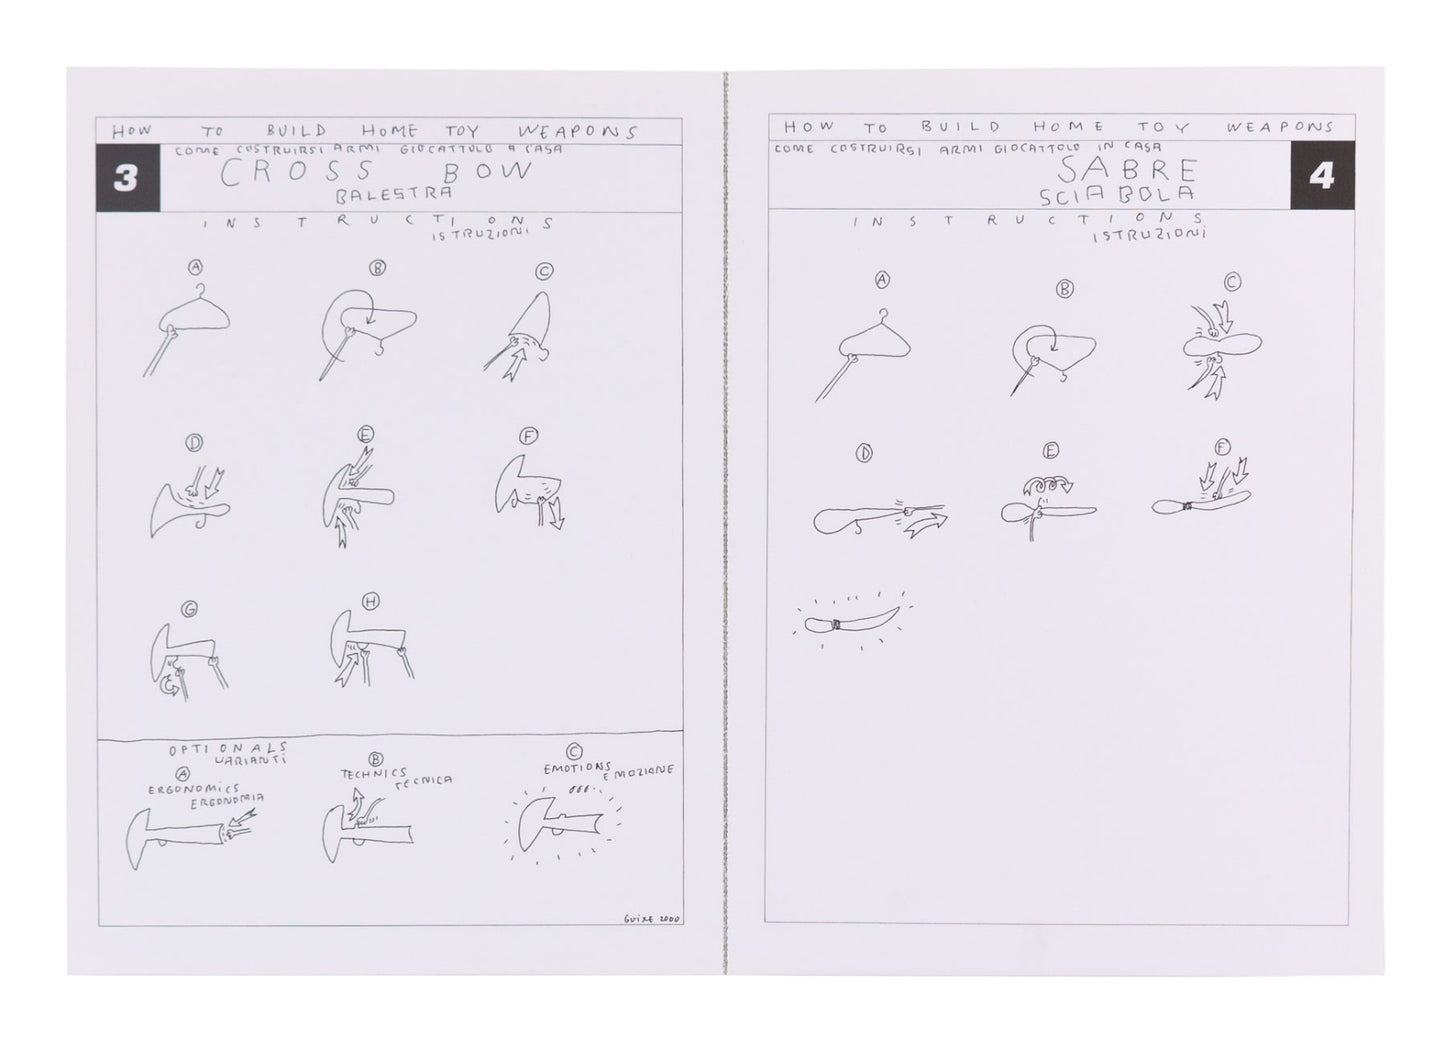 HOW TO BUILD HOME TOY WEAPONS
3
COME COSTRUIRSI ARMI GIOCATTOLO A CASA
CROSS BOW
BALESTRA
INSTRUCTIONS
ISTRUZIONI
A B C
D E F
G H
OPTIONALS
VARIANTI
A
ERGONOMICS
ERGONOMIA
B
TECHNICS
TECNICA
C
EMOTIONS
EMOZIONE
GUIXE 2000
HOW TO BUILD HOME TOY WEAPONS
COME COSTRUIRSI ARMI GIOCATTOLO IN CASA
4
SABRE
SCIABOLA
INSTRUCTIONS
ISTRUZIONI
A B C
D E F